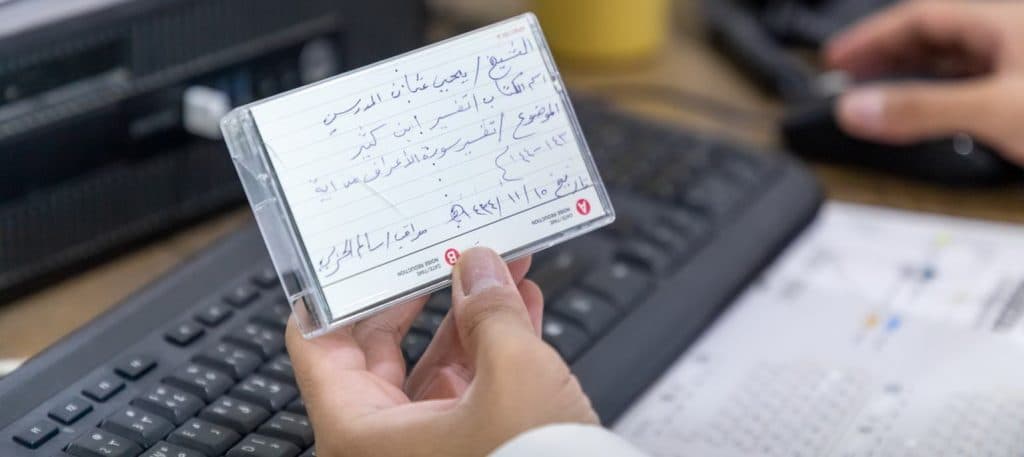 الشيخ / يحيى عثمان المدرس
اسم الكتاب / تفسير ابن كثير
الموضوع / تفسير سورة الأعراف من اية
١٤٣-١٤٤
تاريخ ١٥ / ١١ / ١٤٢٤هـ
مراقب / سالم الحربي
A
DATE/TIME
NOISE REDUCTION
B
DATE/TIME
NOISE REDUCTION